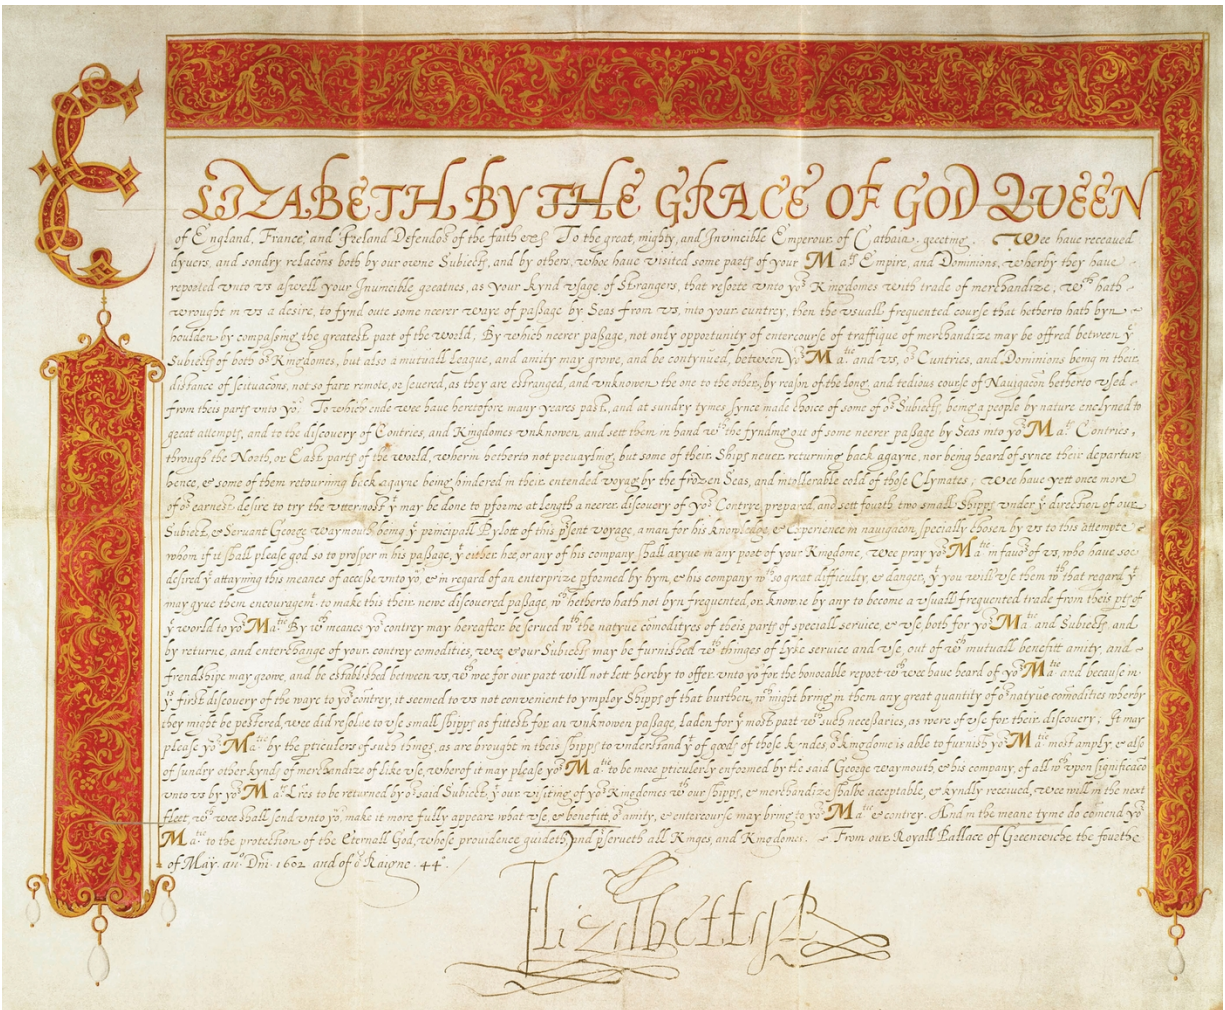 ELIZABETH BY THE GRACE OF GOD QVEEN
of England, France, and Ireland Defendor of the faith &c. To the great, mighty, and Invincible Emperour of Cathaia, greeting. Wee have receaued
dyuers, and sondry relacõns both by our owne Subiects, and by others, whoe have visited some parts of your Ma:ts Empire, and Dominions, wherby they have
reported vnto vs aswell your Invincible greatnes, as your kynd vsage of Strangers, that resorte vnto yor Kingdomes with trade of merchandize, wch hath
wrought in vs a desire, to fynd oute some neerer waye of passage by Seas from vs, into your cuntrey, then the vsuall frequented course that hetherto hath byn
houlden by compassing the greatest part of the world, By which neerer passage, not only opportunity of entercourse of traffique of merchandize may be offred between ye
Subiects of both or Kingdomes, but also a mutuall League, and amity may growe, and be contynued, between yor Ma:tie and vs, or Cuntries, and Dominions being in their
distance of scituacõns, not so farr remote, or seuered, as they are estranged, and vnknowen the one to the other, by reason of the long, and tedious course of Navigacõn hetherto vsed
from theis parts vnto yo: To which ende wee have heretofore many yeares past, and at sundry tymes synce made choice of some of or Subiects, being a people by nature enclyned to
great attempts, and to the discovery of Contries, and Kingdomes vnknowen and sett them in hand wth the fynding out of some neerer passage by Seas into yor Ma:ts Contries,
through the North, or East parts of the world, wherin hetherto not preuayling, but some of their Ships never returning back agayne, nor being heard of synce their departure
hence, & some of them retourning back agayne being hindered in their entended voyag by the frozen Seas, and intollerable cold of those Clymates; wee have yett once more
of or earnest desire to try the vttermost yt may be done to pfoame at length a neerer discovery of yor Contrye, prepared, and sett fourth two small Shipps vnder ye direction of our
Subiect, & Servant George Waymouth being ye principall Pylott of this pñt voyage, a man for his knowledge, & experience in navigacõn, specially chosen by vs to this attempte
whom if it shall please god so to prosper in his passage, yt either hee, or any of his company shall aryue in any port of your Kingdome, wee pray yor Ma:tie in fauor of vs, who have soe
desired ye attayning this meanes of accesse vnto yo, & in regard of an enterprize pformed by hym, & his company wth so great difficulty, & danger, yt you will vse them wth that regard yt
may gyue them encouragemt to make this their newe discovered passage, wch hetherto hath not byn frequented, or knowne by any to become a vsuall frequented trade from theis pts of
ye world to yor Ma:tie By wch meanes yor contrey may hereafter be serued wth the natyue comodityes of theis parts of speciall service, & vse, both for yor Ma:tie and Subiects, and
by returne, and enterchange of your contrey comodities, wee, & our Subiects may be furnished wth thinges of lyke service and vse, out of wch mutuall benefitt amity, and
frendshipe may growe, and be established between vs, wch wee for our part will not lett hereby to offer vnto yo for the honorable report wch wee have heard of yor Ma:tie and because in
ys first discovery of the waye to yor contrey, it seemed to vs not convenient to ymploy Shipps of that burthen, wch might bring in them any great quantity of or natyue comodities wherby
they might be pestered, wee did resolue to vse small shipps as fittest for an vnknowen passage, laden for ye most part wth such necessaries, as were of vse for their discovery; It may
please yor Ma:tie by the pticulers of such things, as are brought in theis shipps to vnderstand yt of goods of those kindes, or kingdome is able to furnish yor Ma:tie most amply, & also
of sundry other kynds of merchandize of like vse, wherof it may please yor Ma:tie to be more pticulerly enformed by the said George Waymouth, & his company, of all wch vpon significacõn
vnto vs by yor Ma:ts Lr̃es to be returned by or said Subiect, yt our visiting of yor Kingdomes wth our shipps, & merchandize shalbe acceptable, & kyndly receiued, wee will in the next
fleet, wch wee shall send vnto yo, make it more fully appeare what vse, & benefitt, or amity, & entercourse may bring to yor Ma:tie & contrey. And in the meane tyme do comend yor
Ma:tie to the protection of the Eternall God, whose providence guideth, and pserueth all Kinges, and Kingdomes. From our Royall Pallace of Greenwiche the fourthe
of May ano Dni 1602 and of or Raigne 44o.
Elizabeth R